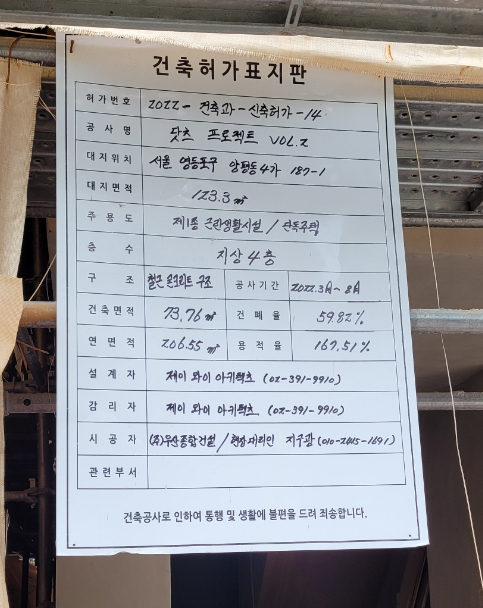 건축허가표지판
허가번호 2022 - 건축과 - 신축허가 - 14
공사명 닷츠 프로젝트 VOL.2
대지위치 서울 영등포구 양평동4가 187-1
대지면적 123.3㎡
주용도 제1종 근린생활시설 / 단독주택
층수 지상 4층
구조 철근 콘크리트 구조 공사기간 2022.3월 ~ 8월
건축면적 73.76㎡ 건폐율 59.82%
연면적 206.55㎡ 용적율 167.51%
설계자 제이 와이 아키텍츠 (02-391-9910)
감리자 제이 와이 아키텍츠 (02-391-9910)
시공자 (주)우산종합건설 / 현장대리인 지우광 (010-2415-1691)
관련부서
건축공사로 인하여 통행 및 생활에 불편을 드려 죄송합니다.